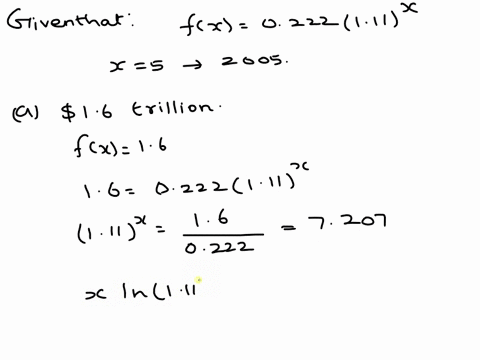 Giventhat: f(x) = 0.222 (1.11)^x
x = 5 → 2005.
(a) $1.6 trillion.
f(x) = 1.6
1.6 = 0.222 (1.11)^x
(1.11)^x = 1.6 / 0.222 = 7.207
x ln(1.11